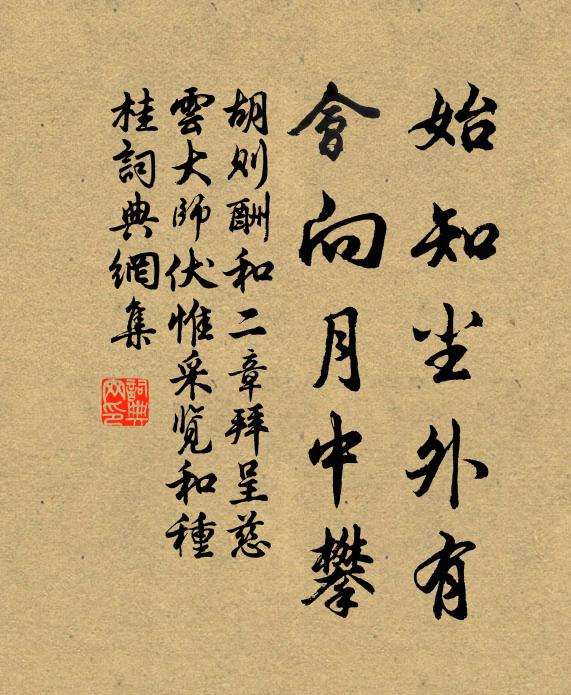 始知尘外有
會向月中攀
胡则酬和二章拜呈慈
雲大师伏惟采览和種
桂詞典網集
詞典
网印